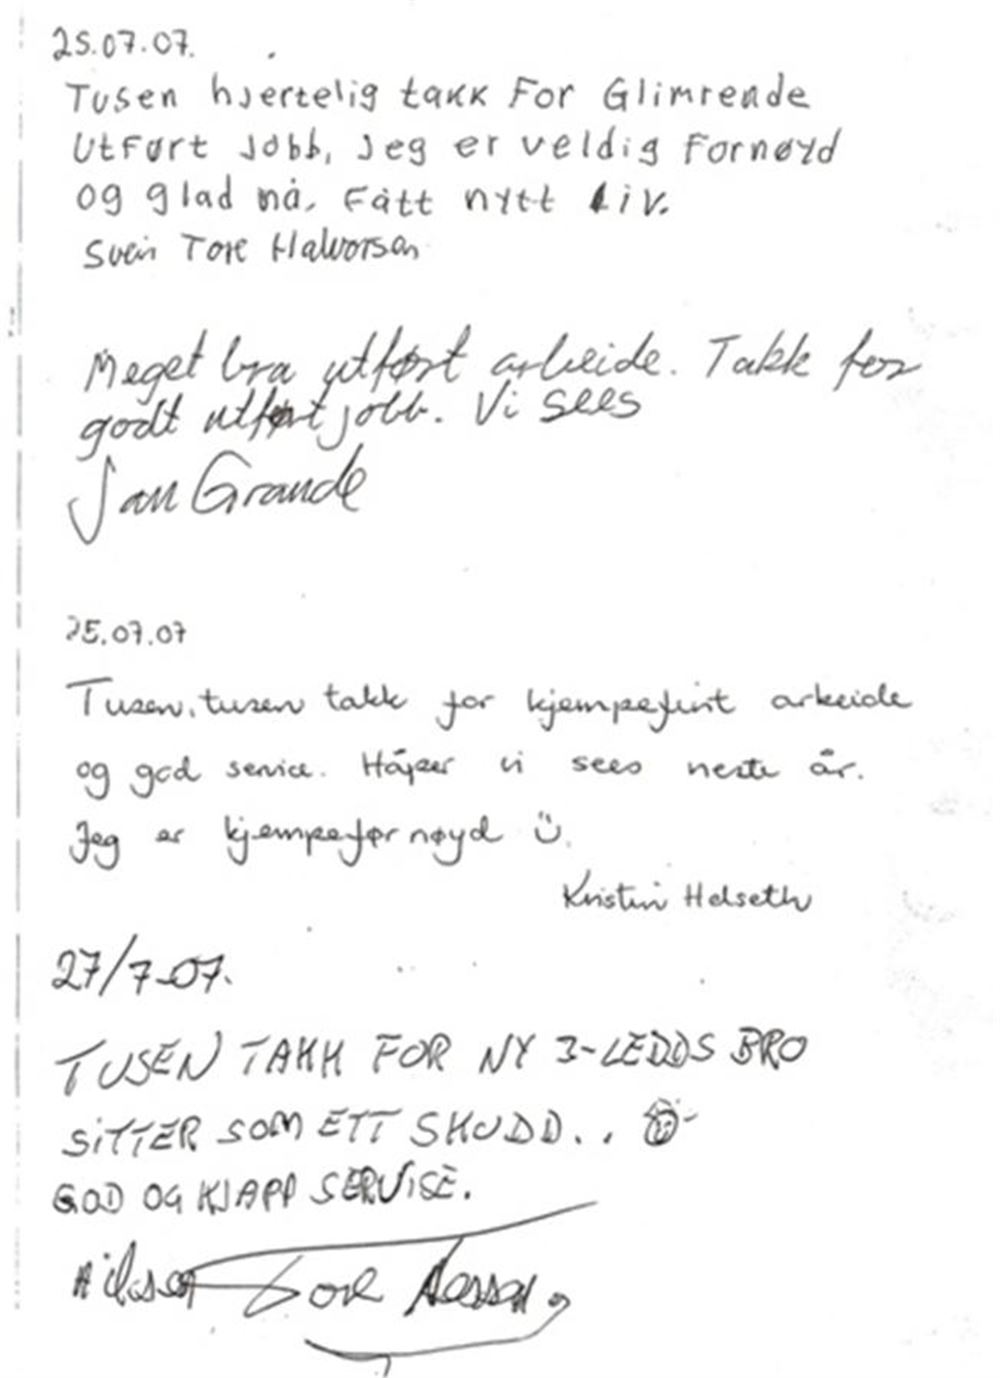 25.07.07.
Tusen hjertelig takk For Glimrende
Utført jobb, Jeg er veldig Fornøyd
og glad nå. Fått nytt Liv.
Svein Tore Halvorsen
Meget bra utført arbeide. Takk for
godt utført jobb. Vi sees
Jan Grande
25.07.07
Tusen, tusen takk for kjempefint arbeide
og god service. Håper vi sees neste år.
Jeg er kjempefornøyd
Kristin Helseth
27/7-07.
TUSEN TAKK FOR NY 3-LEDDS BRO
SITTER SOM ETT SKUDD..
GOD OG KJAPP SERVISE.
Hilsen Tore